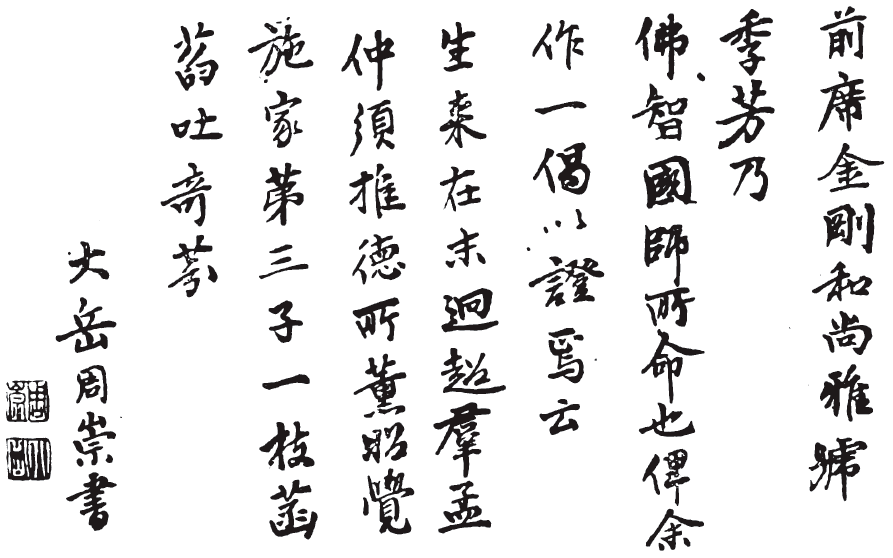 前席金剛和尚雅號
季芳乃
佛智國師所命也俾余
作一偈以證焉云
生來在末迥超羣孟
仲須推德所薰昭覺
施家第三子一枝菡
萏吐奇芬
大岳周崇書